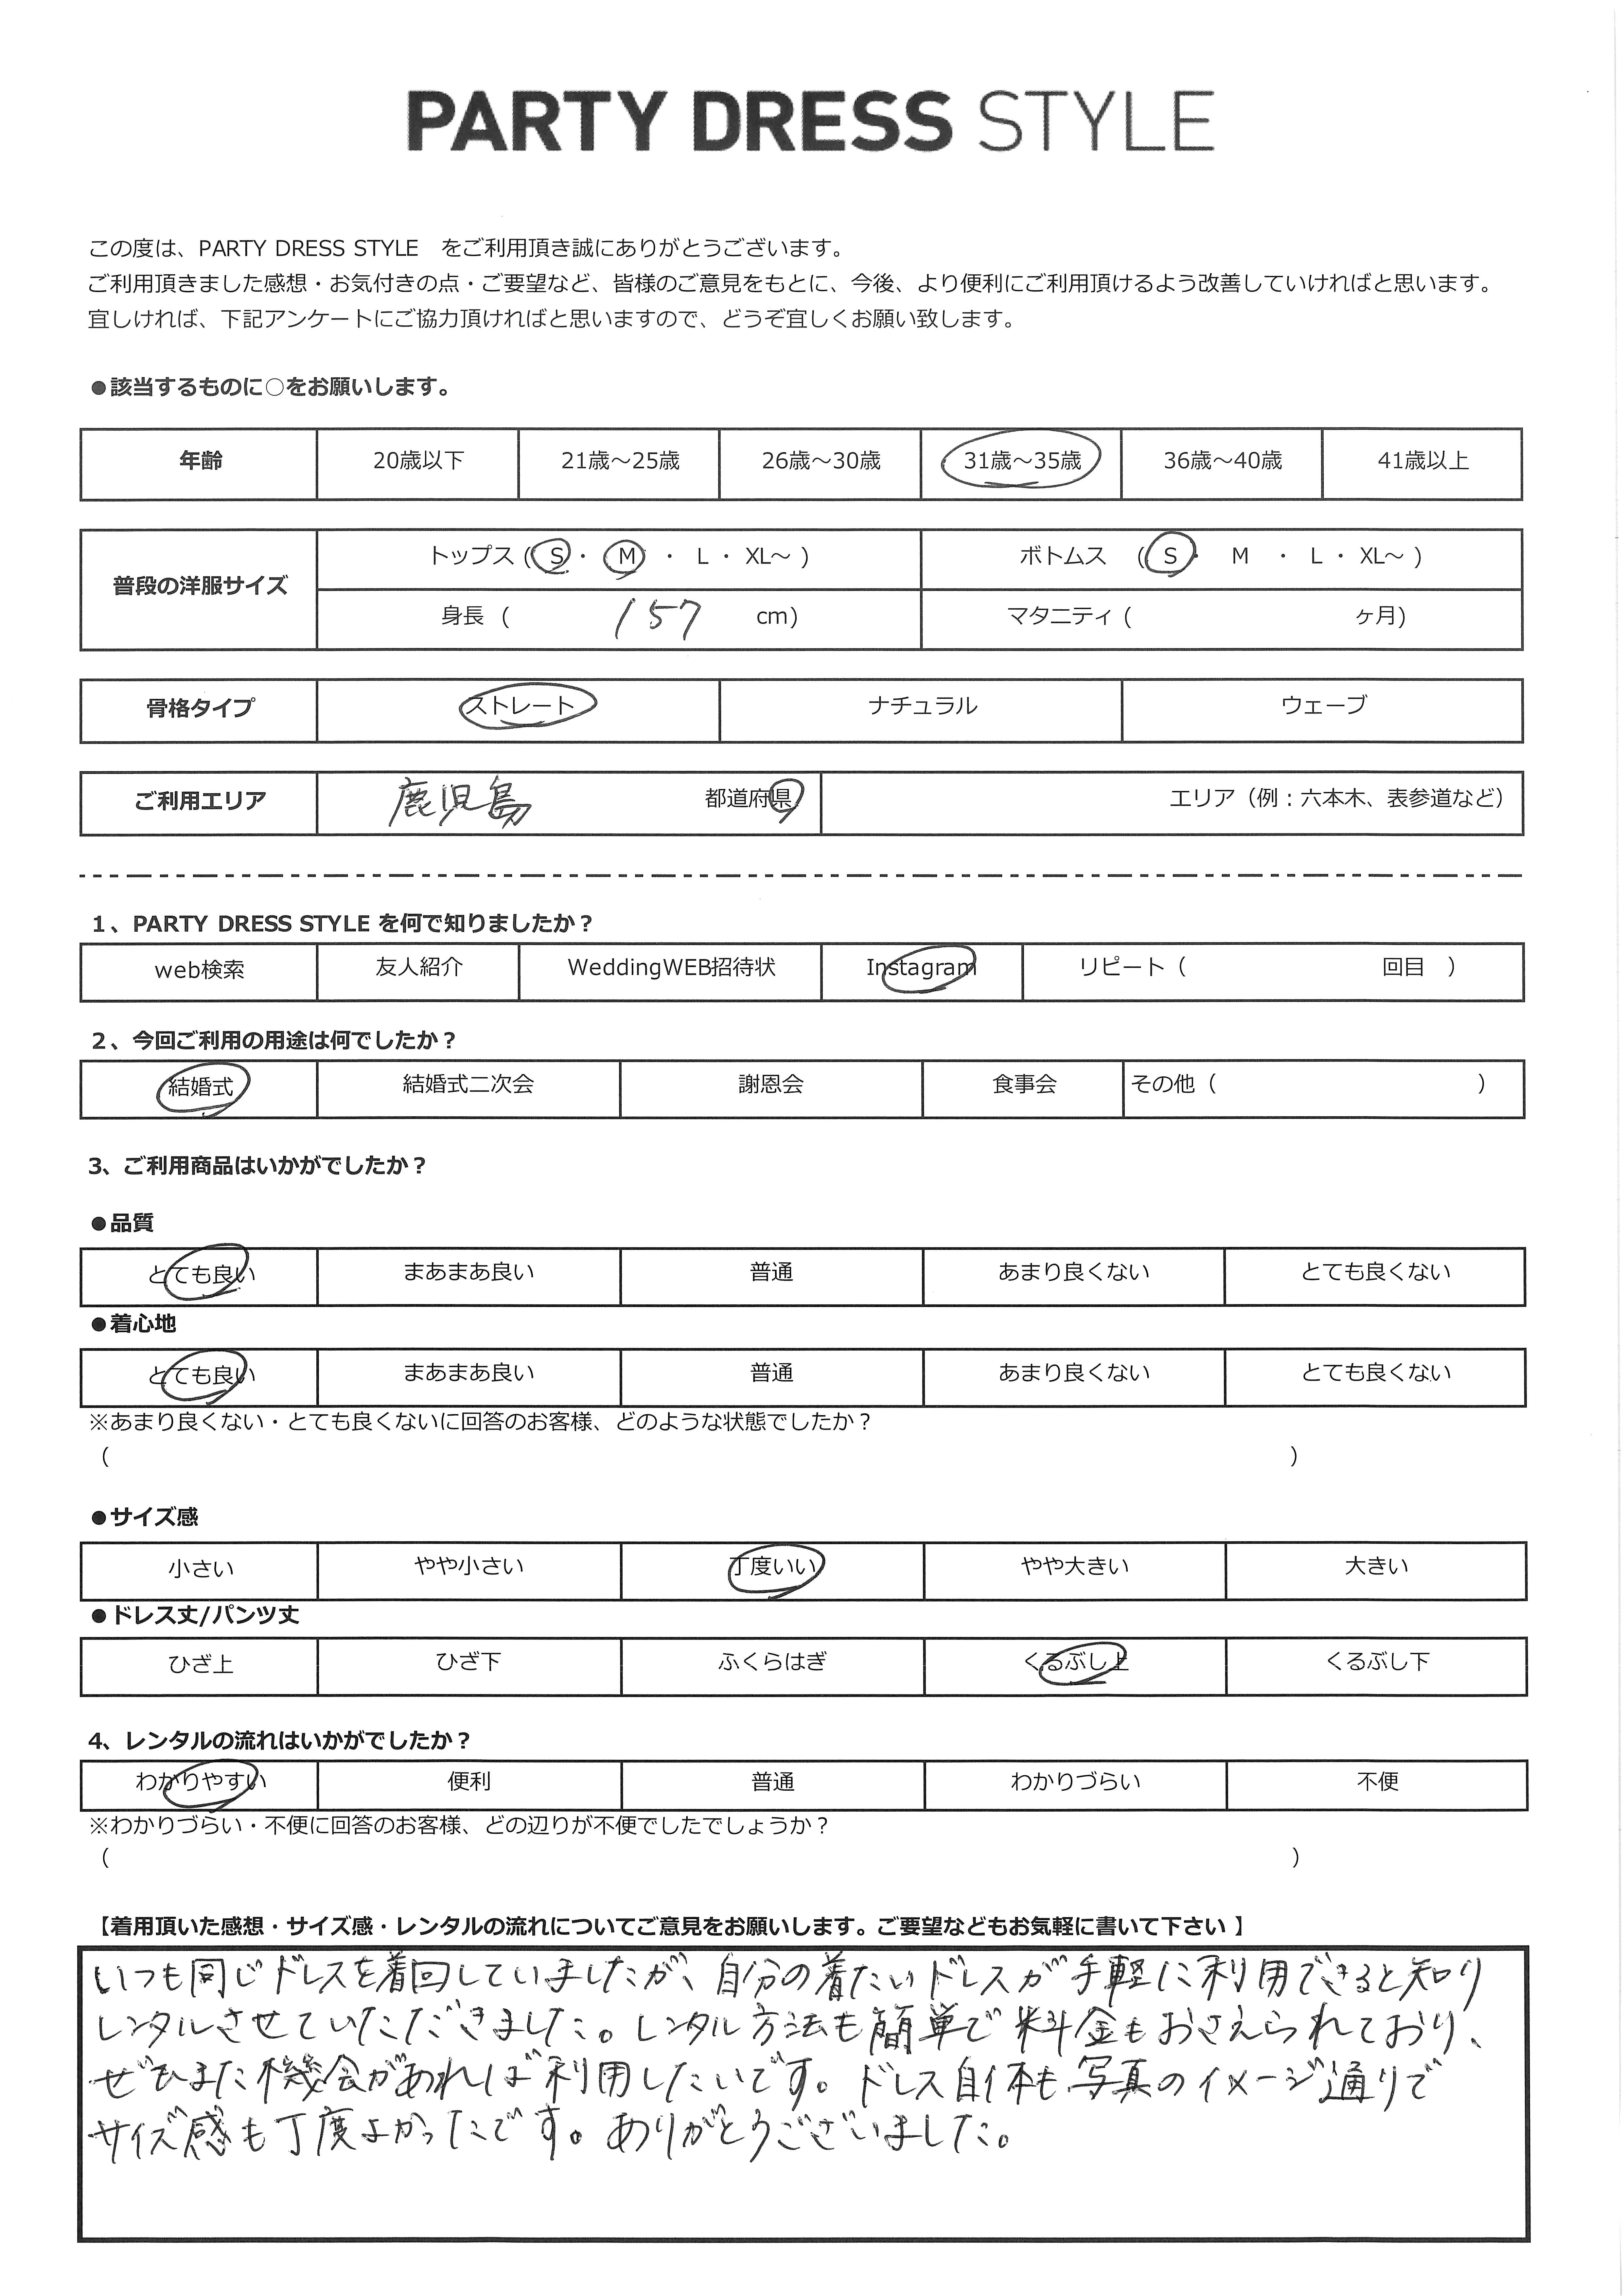 PARTY DRESS STYLE
この度は、PARTY DRESS STYLE　をご利用頂き誠にありがとうございます。
ご利用頂きました感想・お気付きの点・ご要望など、皆様のご意見をもとに、今後、より便利にご利用頂けるよう改善していければと思います。
宜しければ、下記アンケートにご協力頂ければと思いますので、どうぞ宜しくお願い致します。
●該当するものに○をお願いします。
年齢 20歳以下 21歳～25歳 26歳～30歳 31歳～35歳 36歳～40歳 41歳以上
普段の洋服サイズ
トップス ( S ・ M ・ L ・ XL～ ) ボトムス ( S ・ M ・ L ・ XL～ )
身長 ( 157 cm) マタニティ ( ヶ月)
骨格タイプ ストレート ナチュラル ウェーブ
ご利用エリア 鹿児島 都道府県 エリア（例：六本木、表参道など）
1、PARTY DRESS STYLE を何で知りましたか？
web検索 友人紹介 WeddingWEB招待状 Instagram リピート（ 回目 ）
2、今回ご利用の用途は何でしたか？
結婚式 結婚式二次会 謝恩会 食事会 その他（ ）
3、ご利用商品はいかがでしたか？
●品質
とても良い まあまあ良い 普通 あまり良くない とても良くない
●着心地
とても良い まあまあ良い 普通 あまり良くない とても良くない
※あまり良くない・とても良くないに回答のお客様、どのような状態でしたか？
（ ）
●サイズ感
小さい やや小さい 丁度いい やや大きい 大きい
●ドレス丈/パンツ丈
ひざ上 ひざ下 ふくらはぎ くるぶし上 くるぶし下
4、レンタルの流れはいかがでしたか？
わかりやすい 便利 普通 わかりづらい 不便
※わかりづらい・不便に回答のお客様、どの辺りが不便でしたでしょうか？
（ ）
【着用頂いた感想・サイズ感・レンタルの流れについてご意見をお願いします。ご要望などもお気軽に書いて下さい 】
いつも同じドレスを着回していましたが、自分の着たいドレスが手軽に利用できると知り
レンタルさせていただきました。レンタル方法も簡単で料金もおさえられており、
ぜひまた機会があれば利用したいです。ドレス自体も写真のイメージ通りで
サイズ感も丁度よかったです。ありがとうございました。